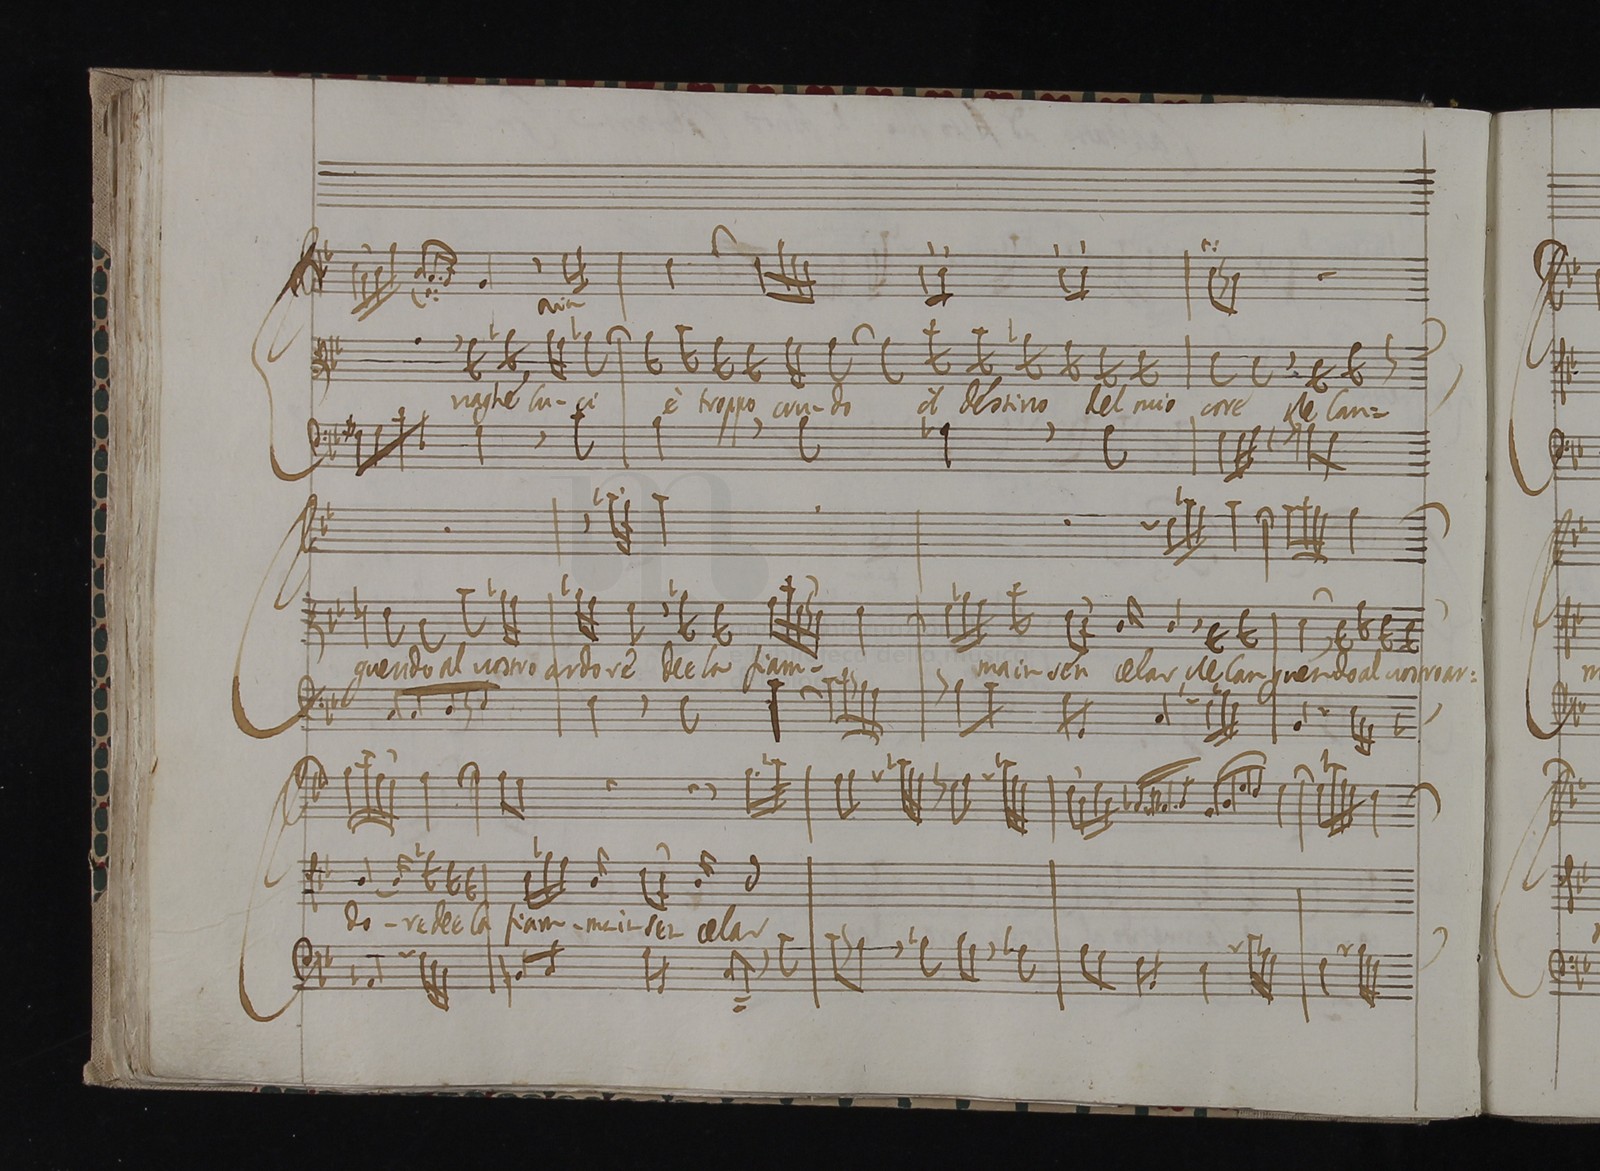 vaghe lu-ci è troppo cru-do il destino del mio core se lan=
guendo al vostro ardore dee la fiam- ma in sen celar, se lan guendo al vostro ar=
do-re dee la fiam-ma in sen celar